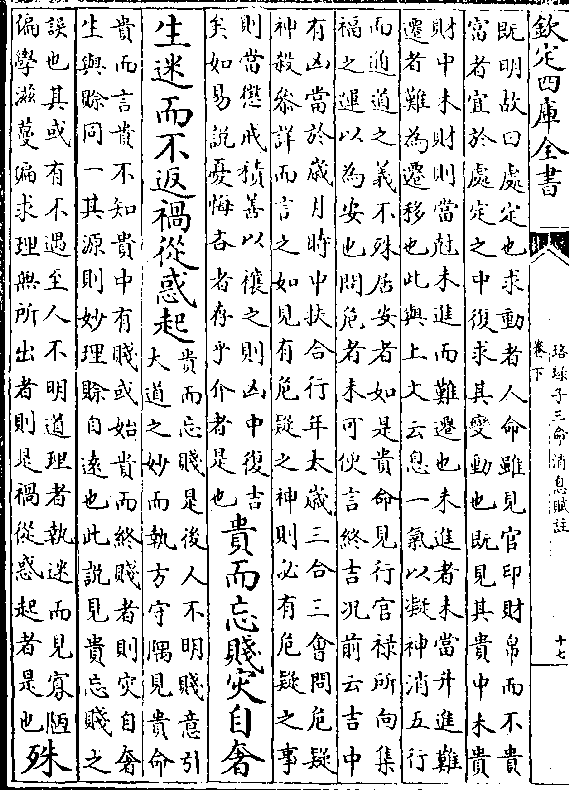 欽定四庫全書
珞琭子三命消息賦註
卷下
十七
既明故曰處定也求動者人命雖見官印財帛而不貴
富者宜於處定之中復求其變動也既見其貴中未貴
財中未財則當尅未進而難遷也未進者未當升進難
遷者難為遷移也此與上文云息一氣以凝神消五行
而通道之義不殊居安者如是貴命見行官禄所向集
福之運以為安也問危者未可便言終吉况前云吉中
有凶當於歳月時中扶合行年太歳三合三會問危疑
神殺叅詳而言之如見有危疑之神則必有危疑之事
則當懲戒積善以禳之則凶中復吉
矣如易說憂悔吝者存乎介者是也
貴而忘賤災自奢
生迷而不返禍從惑起
貴而忘賤是後人不明賤意引
大道之妙而執方守隅見貴命
貴而言貴不知貴中有賤或始貴而終賤者則災自奢
生與賒同一其源則妙理賒自遠也此說見貴忘賤之
誤也其或有不遇至人不明道理者執迷而見寡陋
偏學滋蔓徧求理無所出者則是禍從惑起者是也
殊